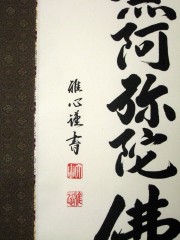 無阿弥陀佛
雅心謹書